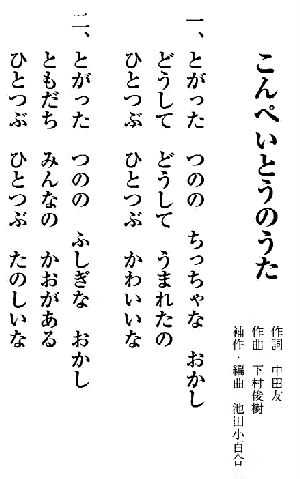 こんぺいとうのうた
作詞 中田友
作曲 下村俊樹
補作・編曲 池田小百合
一、とがった つのの ちっちゃな おかし
どうして どうして うまれたの
ひとつぶ ひとつぶ かわいいな
二、とがった つのの ふしぎな おかし
ともだち みんなの かおがある
ひとつぶ ひとつぶ たのしいな